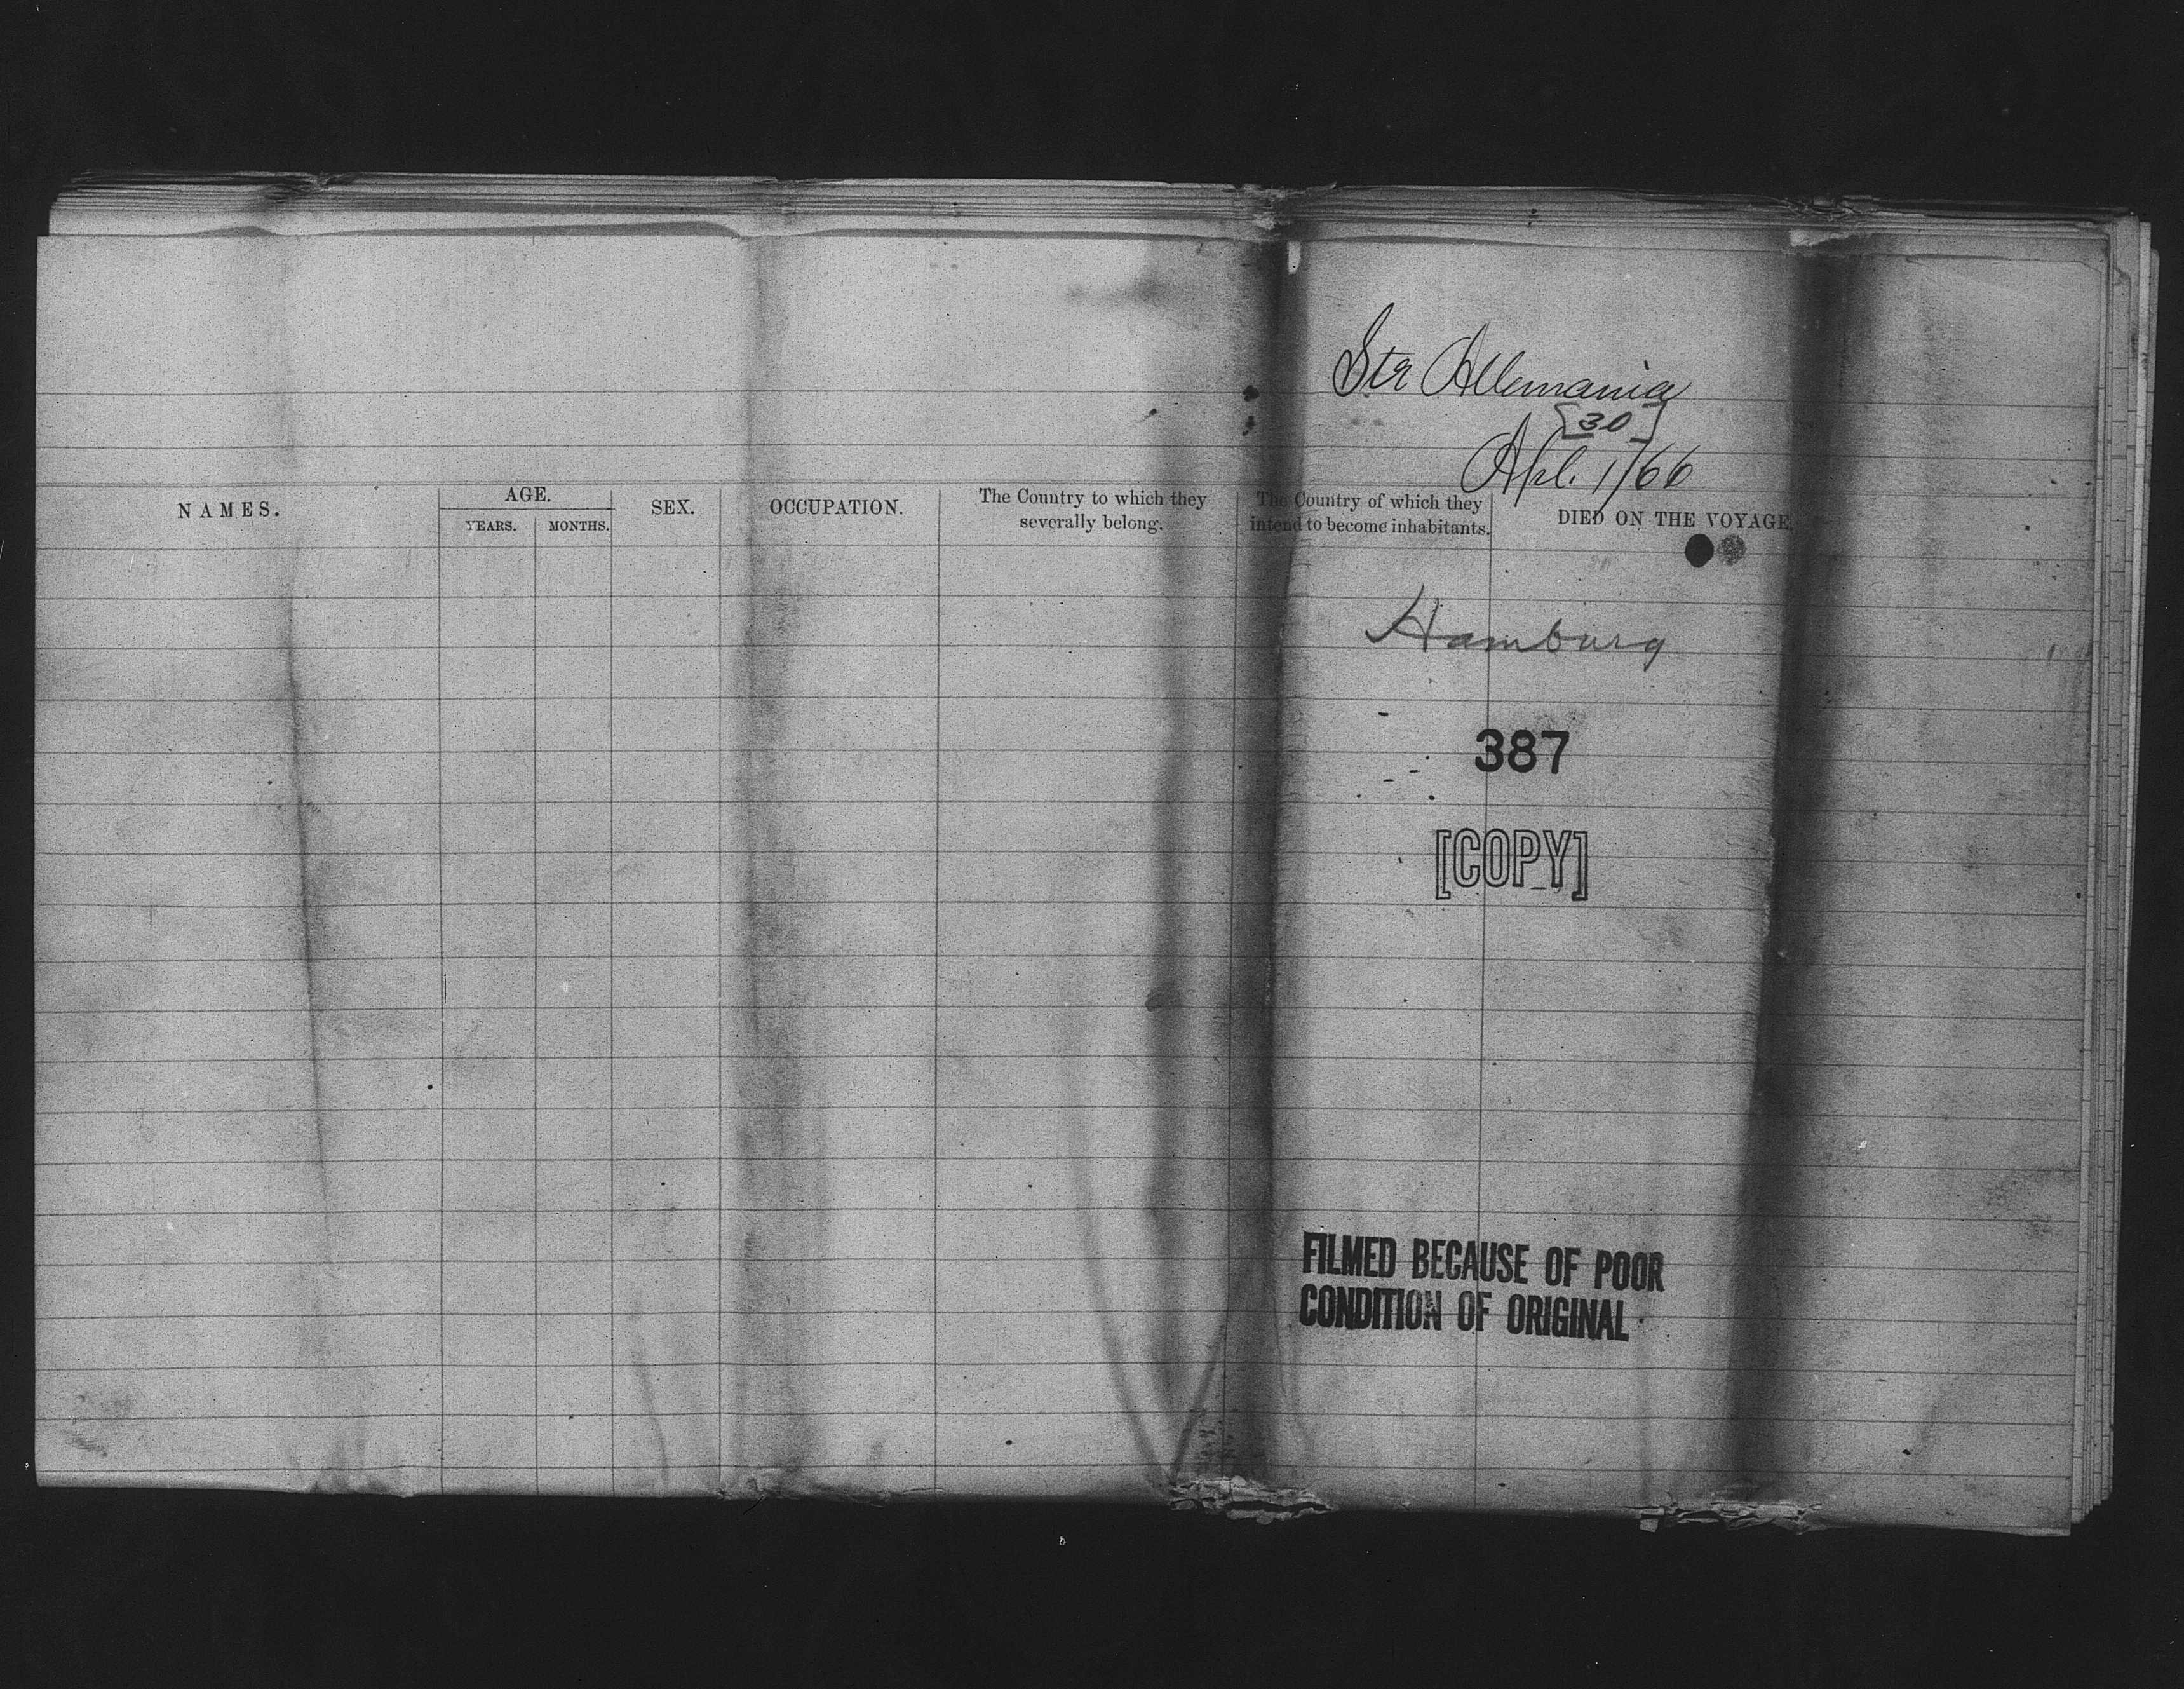 Str Allemania
[30]
Apl. 1/66
NAMES.
AGE.
YEARS.
MONTHS.
SEX.
OCCUPATION.
The Country to which they
severally belong.
The Country of which they
intend to become inhabitants.
DIED ON THE VOYAGE.
Hamburg
387
[COPY]
FILMED BECAUSE OF POOR
CONDITION OF ORIGINAL